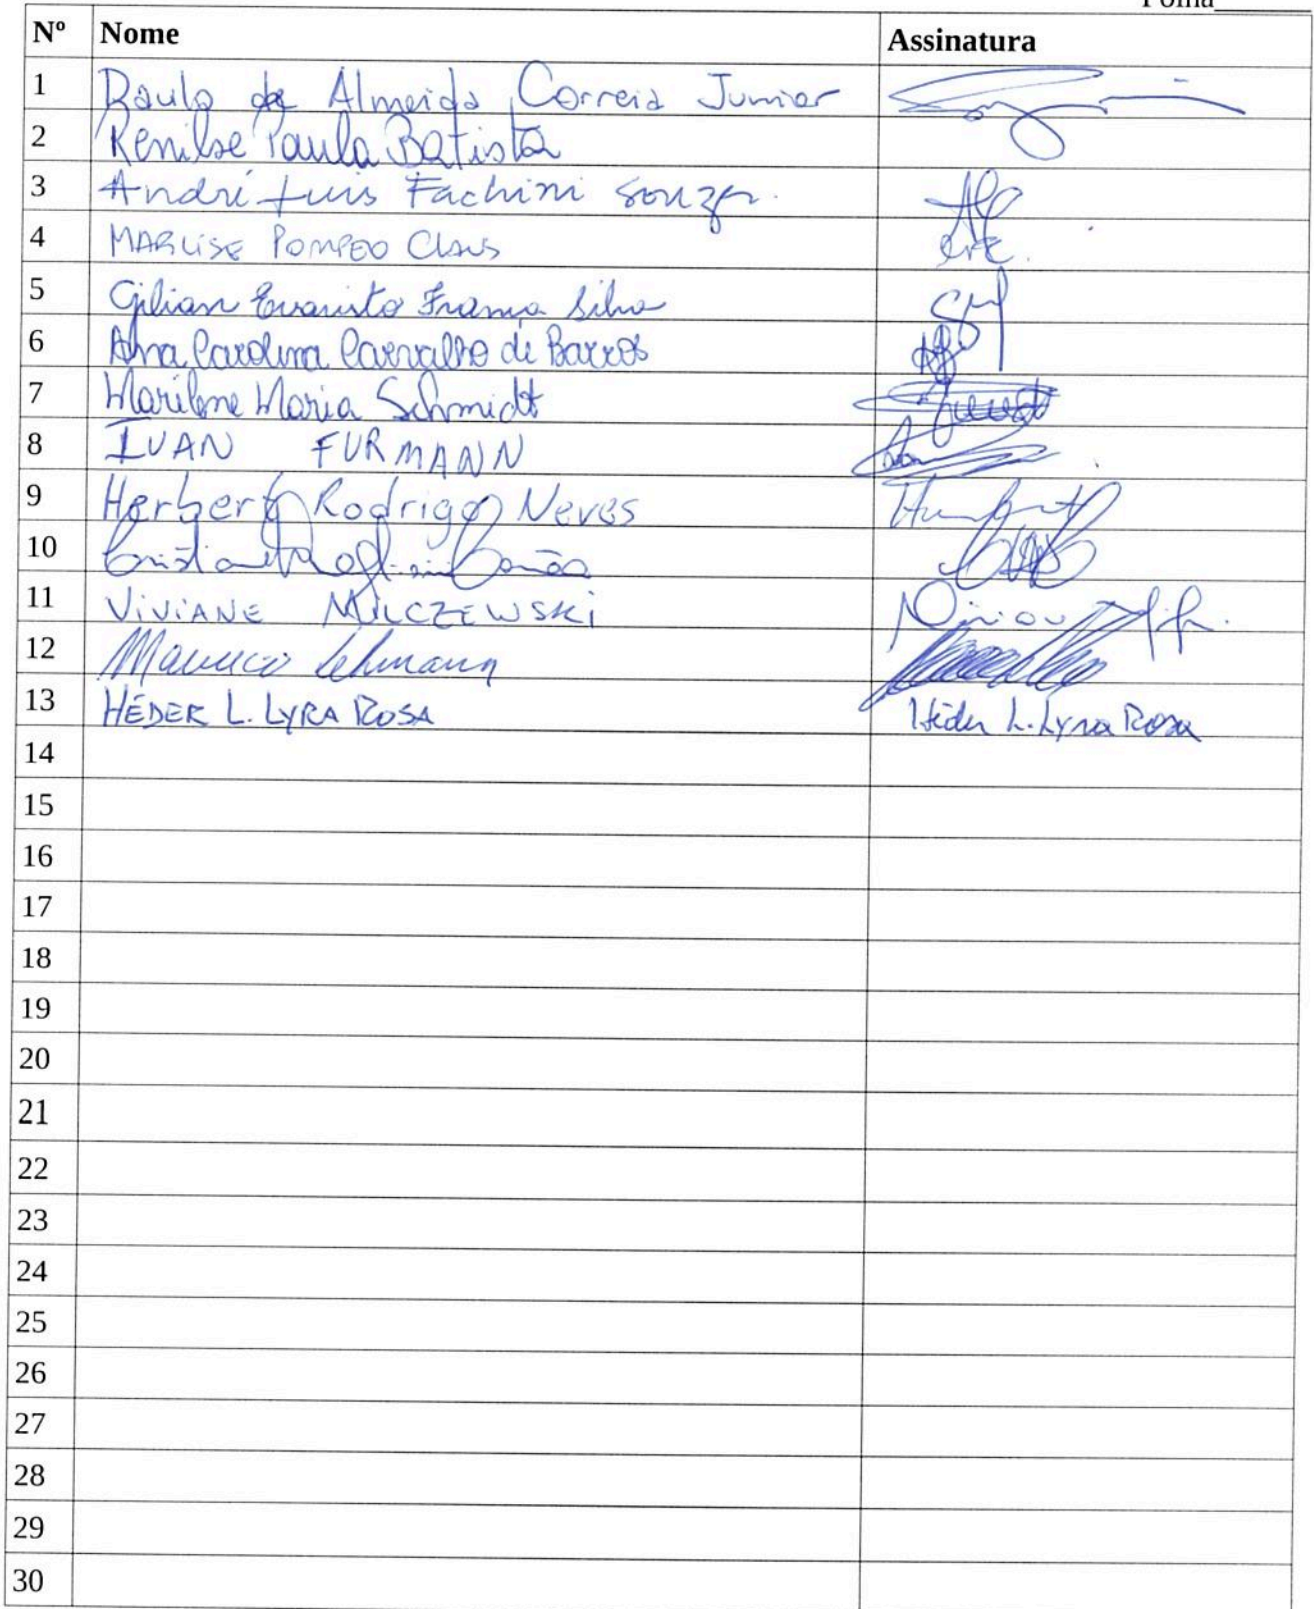 Folha
Nº Nome Assinatura
1 Paulo de Almeida Correia Junior
2 Renilse Paula Batista
3 André Luis Fachini Souza
4 MARLISE POMPEO Claus
5 Gilian Evaristo França Silva
6 Ana Carolina Carvalho de Barros
7 Marilene Maria Schmidt
8 IVAN FURMANN
9 Herbert Rodrigo Neves
10
11 VIVIANE MILCZEWSKI
12 Maurício Lehmann
13 HÉDER L. LYRA ROSA Héder L. Lyra Rosa
14
15
16
17
18
19
20
21
22
23
24
25
26
27
28
29
30